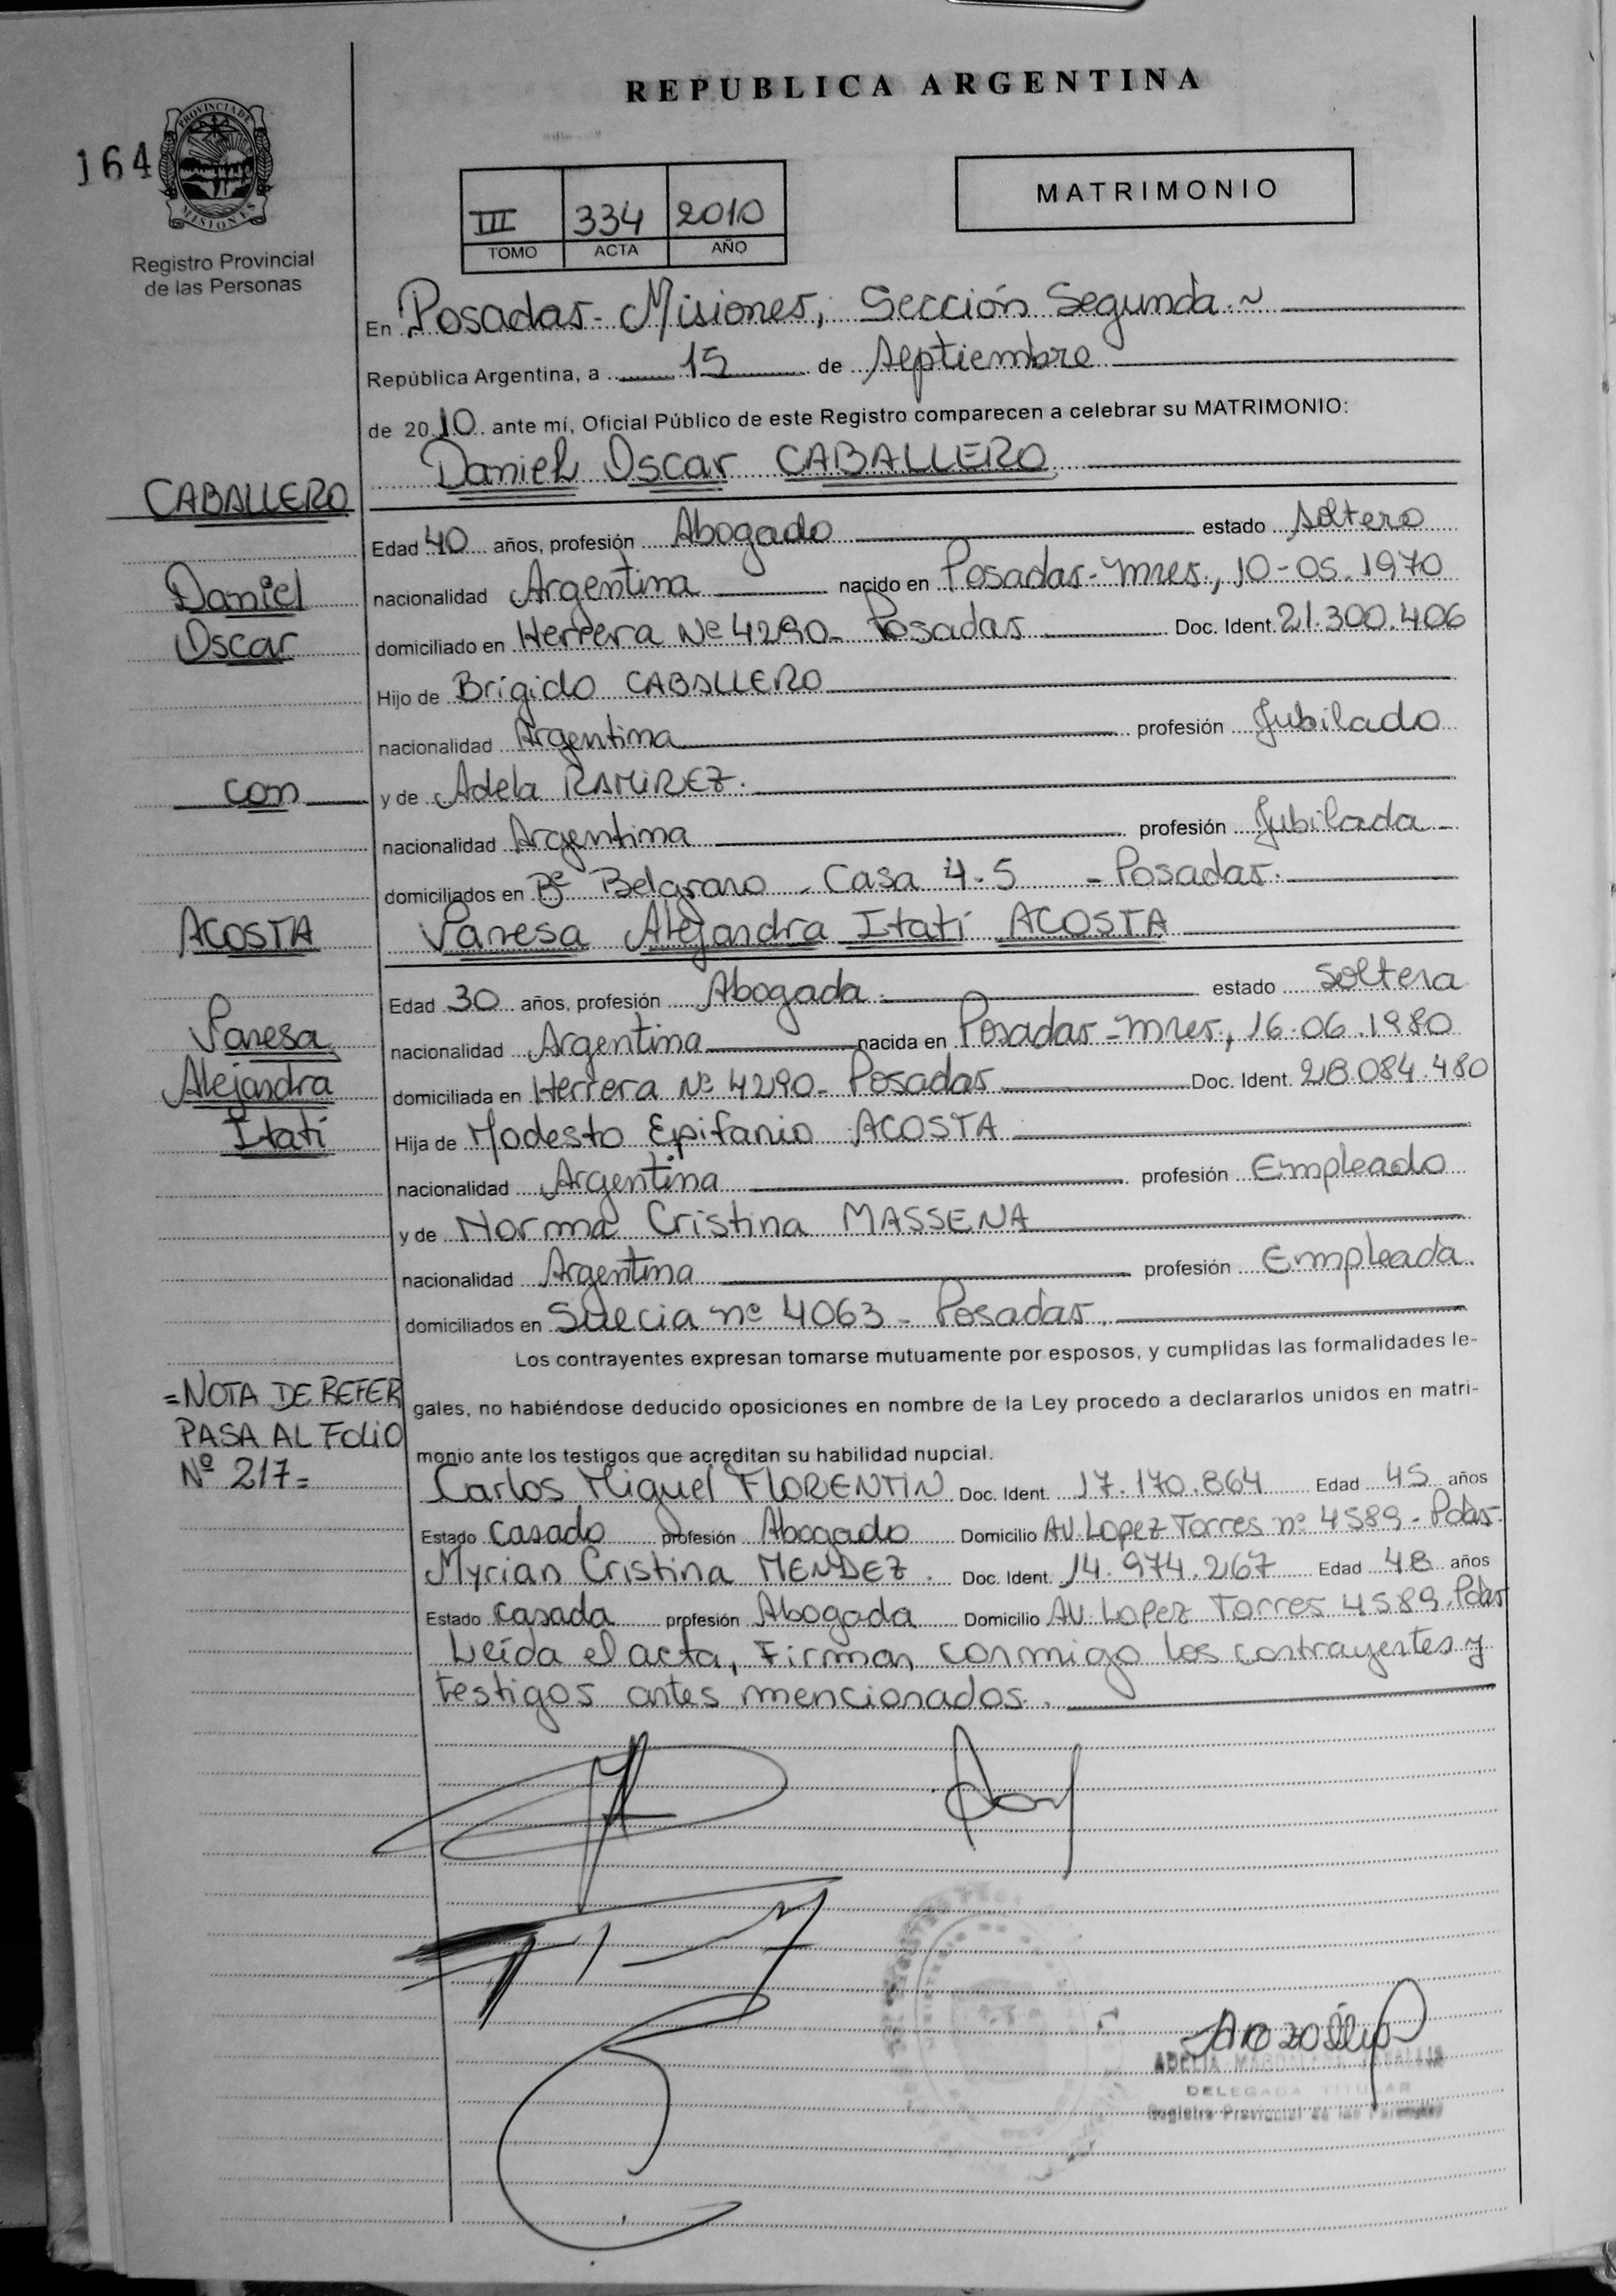 REPUBLICA ARGENTINA
164
PROVINCIA DE
MISIONES
Registro Provincial
de las Personas
III 334 2010
TOMO ACTA AÑO
MATRIMONIO
En Posadas- Misiones, Sección Segunda.~
República Argentina, a 15 de septiembre
de 2010 ante mí, Oficial Público de este Registro comparecen a celebrar su MATRIMONIO:
Daniel Oscar CABALLERO
CABALLERO
Edad 40 años, profesión Abogado estado soltero
Daniel
nacionalidad Argentina nacido en Posadas-Mnes, 10-05.1970
Oscar
domiciliado en Herrera Nº 4290- Posadas Doc. Ident. 21.300.406
Hijo de Brígido CABALLERO
nacionalidad Argentina profesión Jubilado
con
y de Adela RAMIREZ.
nacionalidad Argentina profesión Jubilada-
domiciliados en Bº Belgrano - Casa 4-5 - Posadas.
ACOSTA
Vanesa Alejandra Itatí ACOSTA
Edad 30 años, profesión Abogada. estado soltera
Vanesa
nacionalidad Argentina nacida en Posadas-Mnes, 16.06.1980
Alejandra
domiciliada en Herrera Nº 4290- Posadas Doc. Ident. 28.084.480
Itatí
Hija de Modesto Epifanio ACOSTA
nacionalidad Argentina profesión Empleado
y de Norma Cristina MASSENA
nacionalidad Argentina profesión Empleada.
domiciliados en Suecia nº 4063 - Posadas.
Los contrayentes expresan tomarse mutuamente por esposos, y cumplidas las formalidades le-
gales, no habiéndose deducido oposiciones en nombre de la Ley procedo a declararlos unidos en matri-
monio ante los testigos que acreditan su habilidad nupcial.
=NOTA DE REFER
PASA AL FOLIO
Nº 217=
Carlos Miguel FLORENTIN Doc. Ident. 17.170.864 Edad 45 años
Estado casado profesión Abogado Domicilio AV. Lopez Torres nº 4589- Pdas.
Myrian Cristina MENDEZ. Doc. Ident. 14.974.267 Edad 48 años
Estado casada profesión Abogada Domicilio AV. Lopez Torres 4589. Pdas
Leída el acta, Firman conmigo los contrayentes y
testigos antes mencionados.
DELEGADA TITULAR
Registro Provincial de las Personas